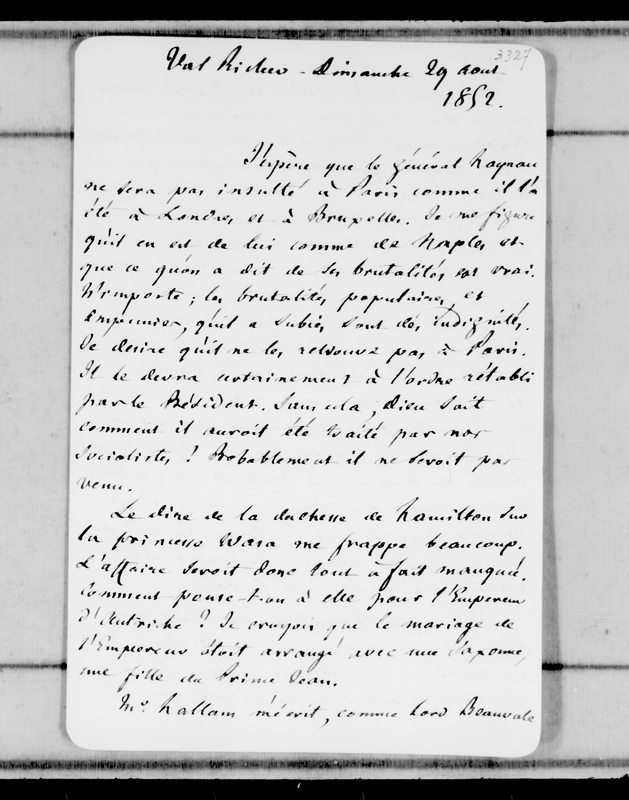 3327
Val Richer - Dimanche 29 aout
1852.
J'espère que le général Haynau
ne sera pas insulté à Paris comme il l'a
été à Londres et à Bruxelles. Je me figure
qu'il en est de lui comme de Naples et
que ce qu'on a dit de ses brutalités est vrai.
N'importe ; les brutalités populaires, et
impunies, qu'il a subies sont des indignités.
Je desire qu'il ne les retrouve pas à Paris.
Il le devra certainement à l'ordre rétabli
par le Président. Sans cela, Dieu sait
comment il auroit été traité par nos
socialistes ! Probablement il ne seroit pas
venu.
Le dire de la duchesse de Hamilton sur
la princesse Wasa me frappe beaucoup.
L'affaire seroit donc tout à fait manquée.
Comment pense-t-on à elle pour l'Empereur
d'Autriche ? Je croyois que le mariage de
l'Empereur étoit arrangé avec une Saxonne,
une fille du Prince Jean.
Mr. Hallam m'écrit, comme Lord Beauvale